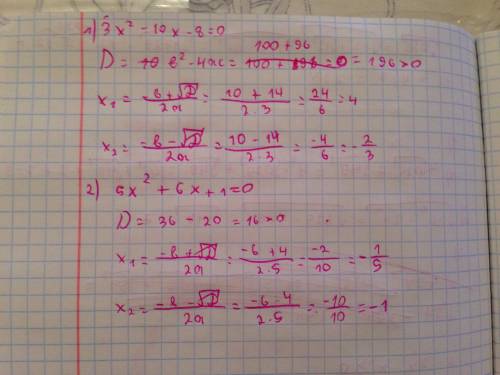 1) 3x² - 10x - 8 = 0
100 + 96
D = b² - 4ac = = 196 > 0
x₁ = (-b + √D)/2a = (10 + 14)/(2·3) = 24/6 = 4
x₂ = (-b - √D)/2a = (10 - 14)/(2·3) = -4/6 = -2/3
2) 5x² + 6x + 1 = 0
D = 36 - 20 = 16 > 0
x₁ = (-b + √D)/2a = (-6 + 4)/(2·5) = -2/10 = -1/5
x₂ = (-b - √D)/2a = (-6 - 4)/(2·5) = -10/10 = -1